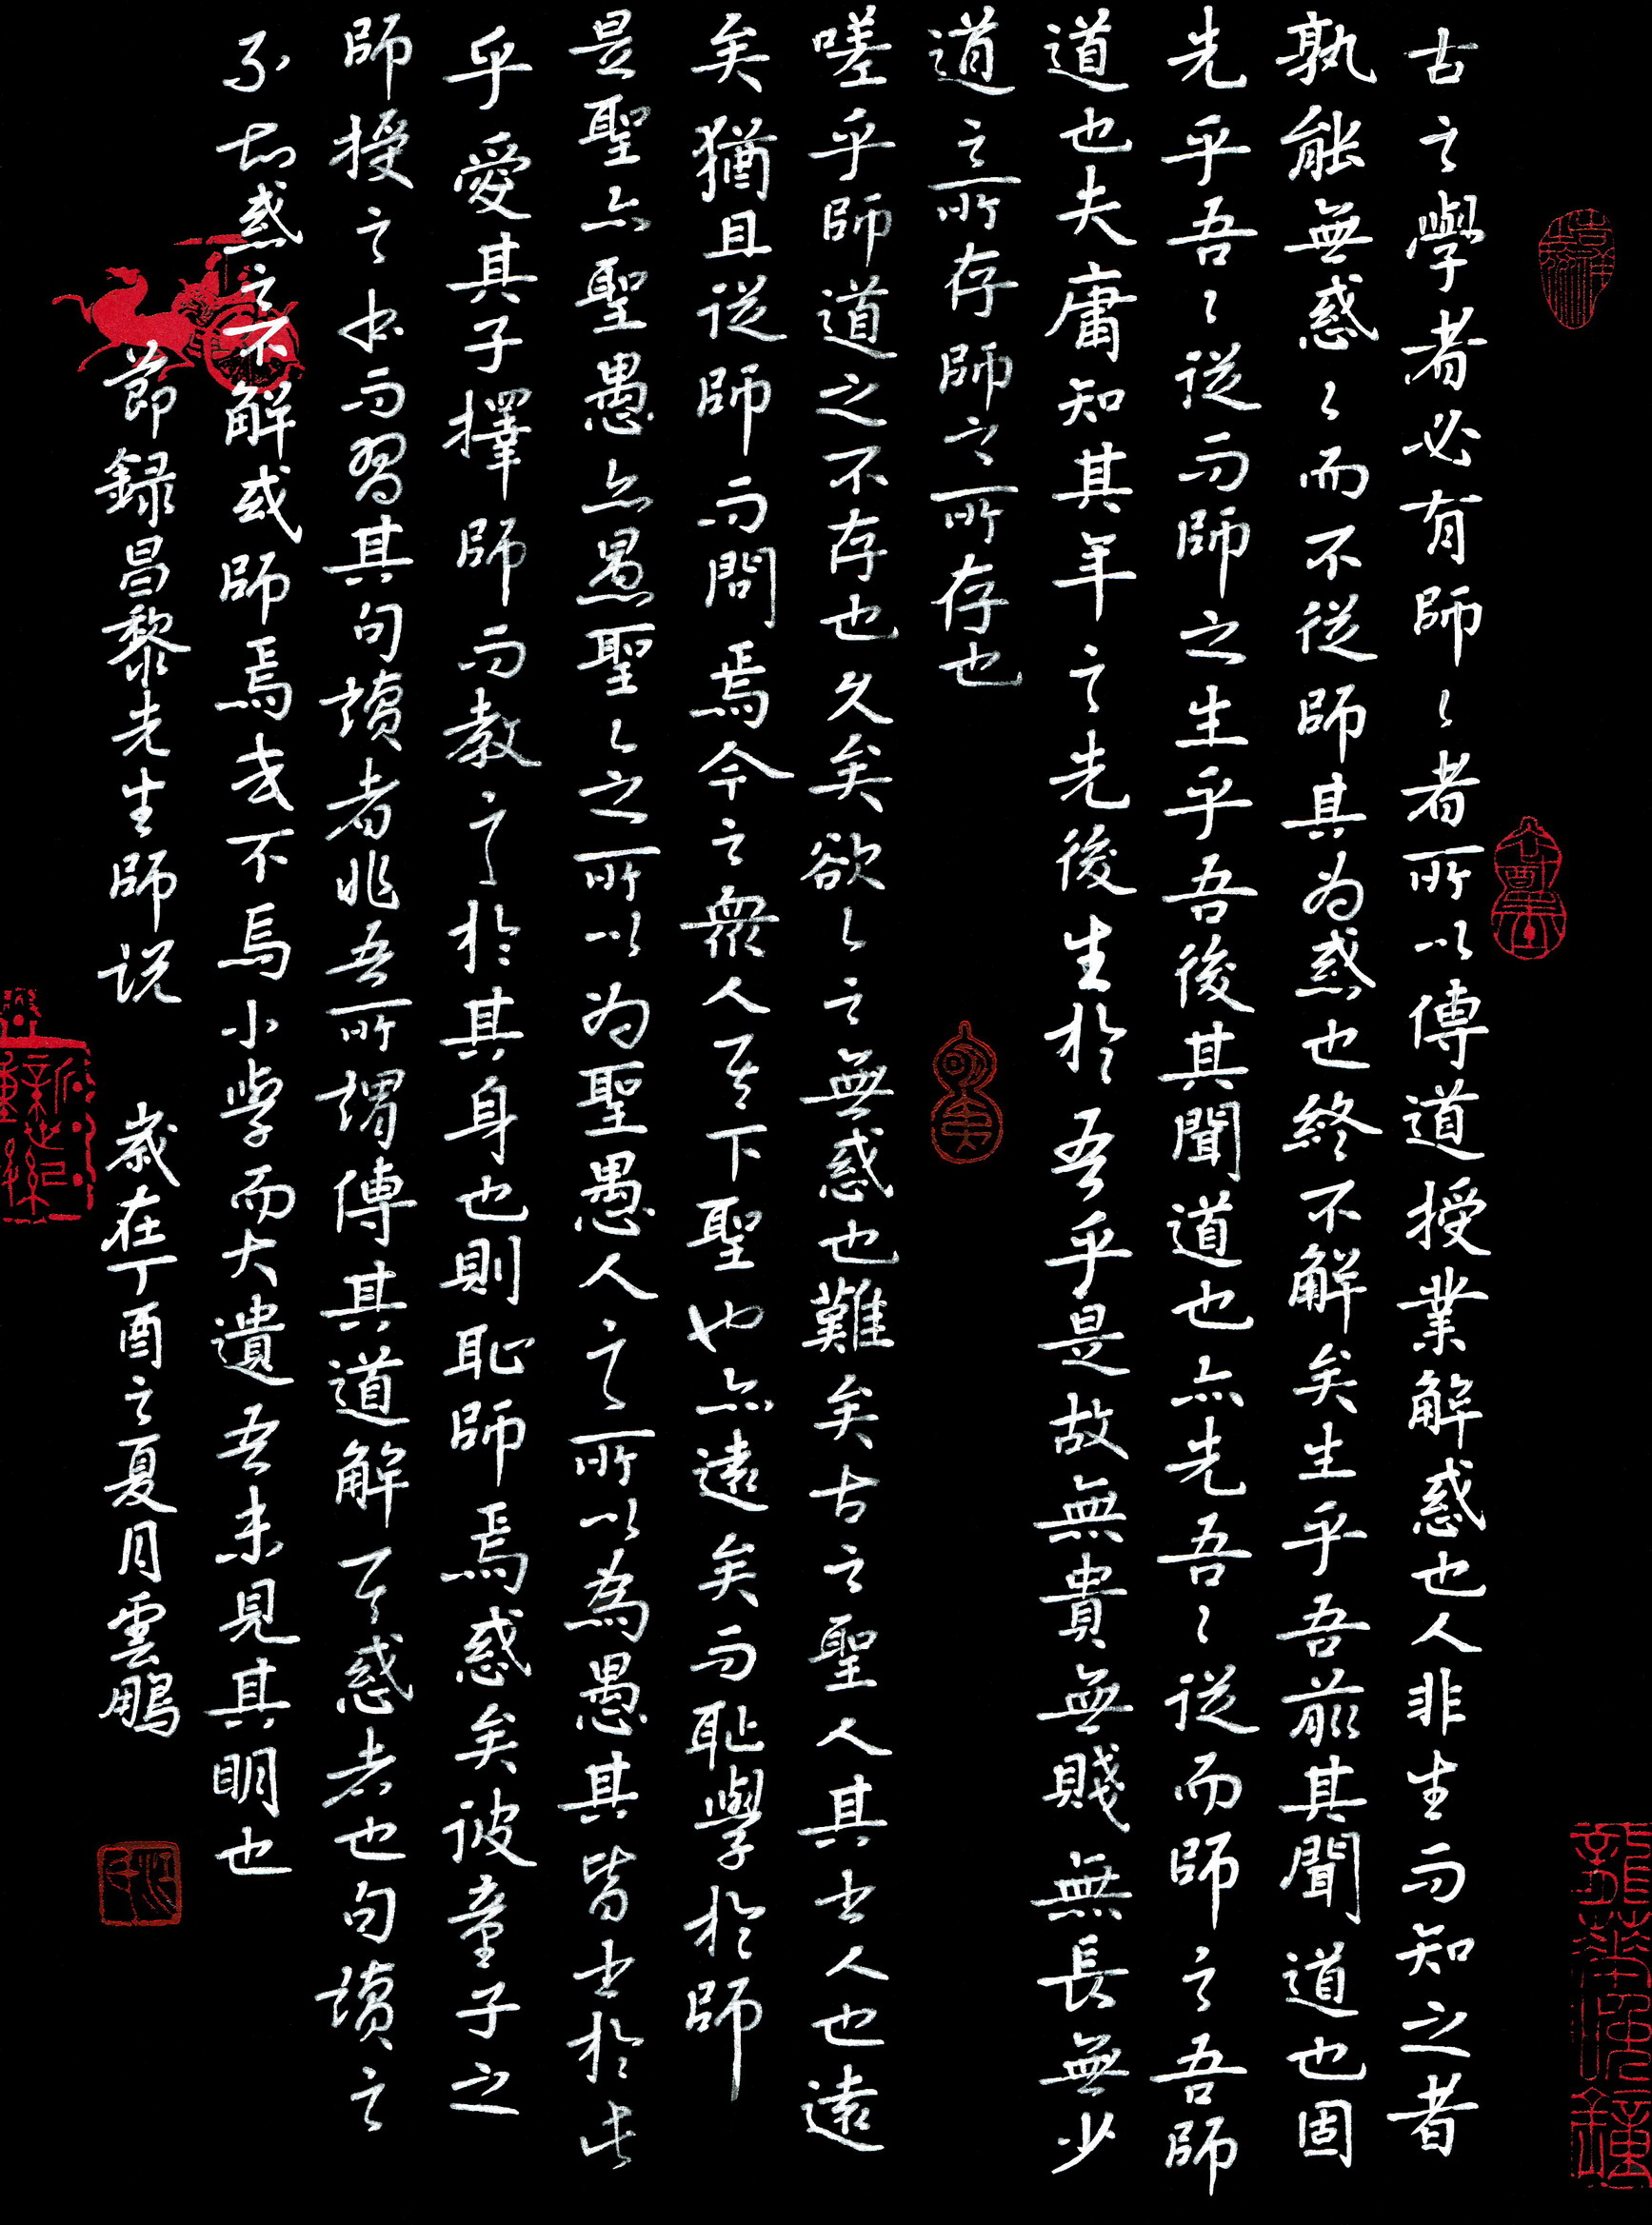 古之學者必有師〻者所以傳道授業解惑也人非生而知之者
孰能無惑〻而不從師其为惑也終不解矣生乎吾前其聞道也固
先乎吾〻從而師之生乎吾後其聞道也亦先吾〻從而師之吾師
道也夫庸知其年之先後生於吾乎是故無貴無賤無長無少
道之所存師之所存也
嗟乎師道之不存也久矣欲〻之無惑也難矣古之聖人其出人也遠
矣猶且從師而問焉今之衆人其下聖也亦遠矣而恥學於師
是聖亦聖愚亦愚聖〻之所以为聖愚人之所以為愚其皆出於此
乎愛其子擇師而教之於其身也則恥師焉惑矣彼童子之
師授之書而習其句讀者非吾所謂傳其道解其惑者也句讀之
不知惑之不解或師焉或不焉小學而大遺吾未見其明也
節録昌黎先生師说 歲在丁酉之夏月雲鵬